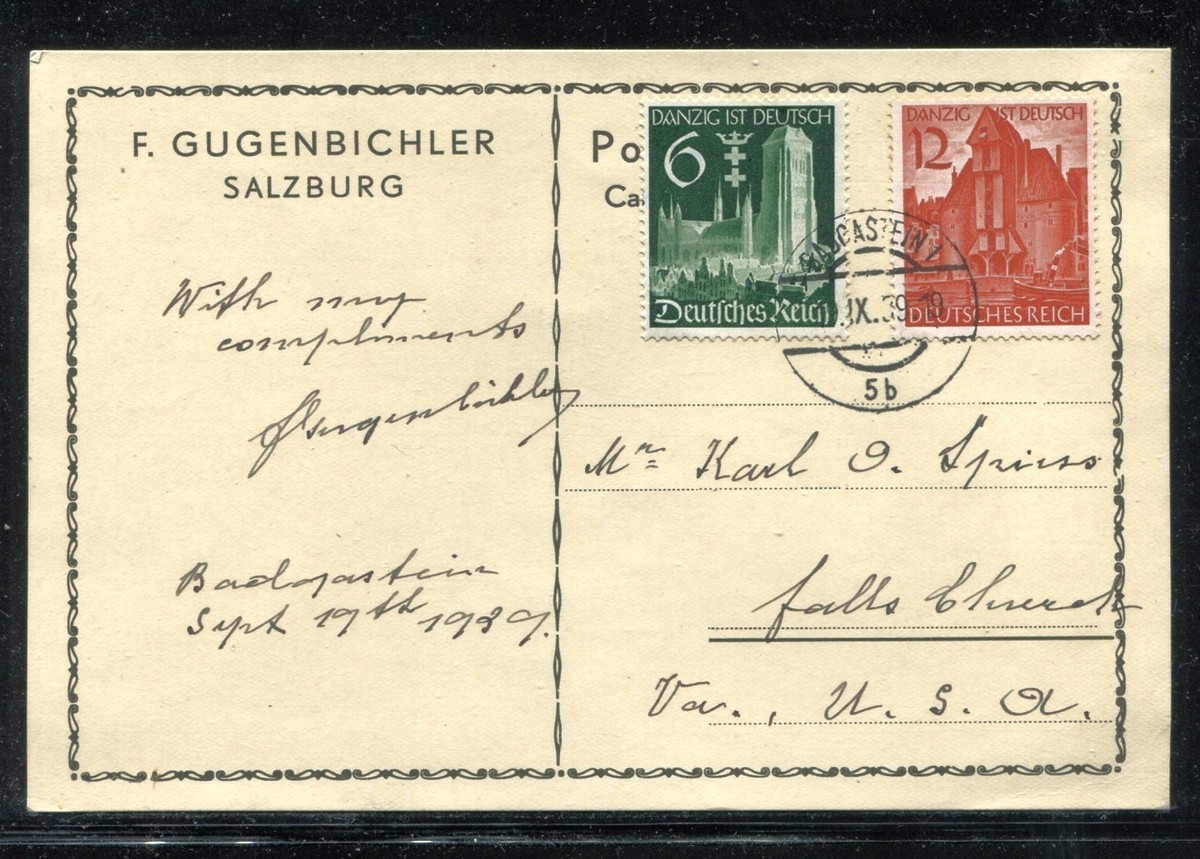 F. GUGENBICHLER
SALZBURG
With my
compliments
FGugenbichler
Badgastein
Sept 19th 1939.
Po
Ca
DANZIG IST DEUTSCH
6
Deutsches Reich
DANZIG IST DEUTSCH
12
DEUTSCHES REICH
BADGASTEIN 1
.IX.39.19
5b
Mr Karl O. Spiess
Falls Church
Va., U. S. A.